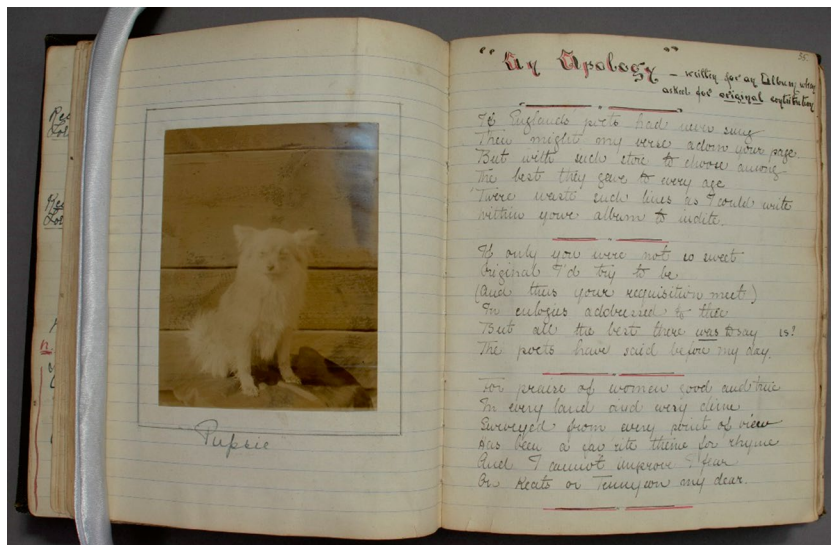 Pupsie
55.
"An Apology" – written for an Album when
asked for original contribution
If Englands poets had never sung
Then might my verse adorn your page
But with such store to choose among
The best they gave to every age
'Twere waste such lines as I could write
Within your album to indite.
If only you were not so sweet
Original I'd try to be
(And thus your requisition meet)
In eulogies addressed to thee
But all the best there was to say is?
The poets have said before my day.
For praise of women good and true
In every land and every clime
Surveyed from every point of view
Has been a fav'rite theme for rhyme
And I cannot improve I fear
On Keats or Tennyson my dear.